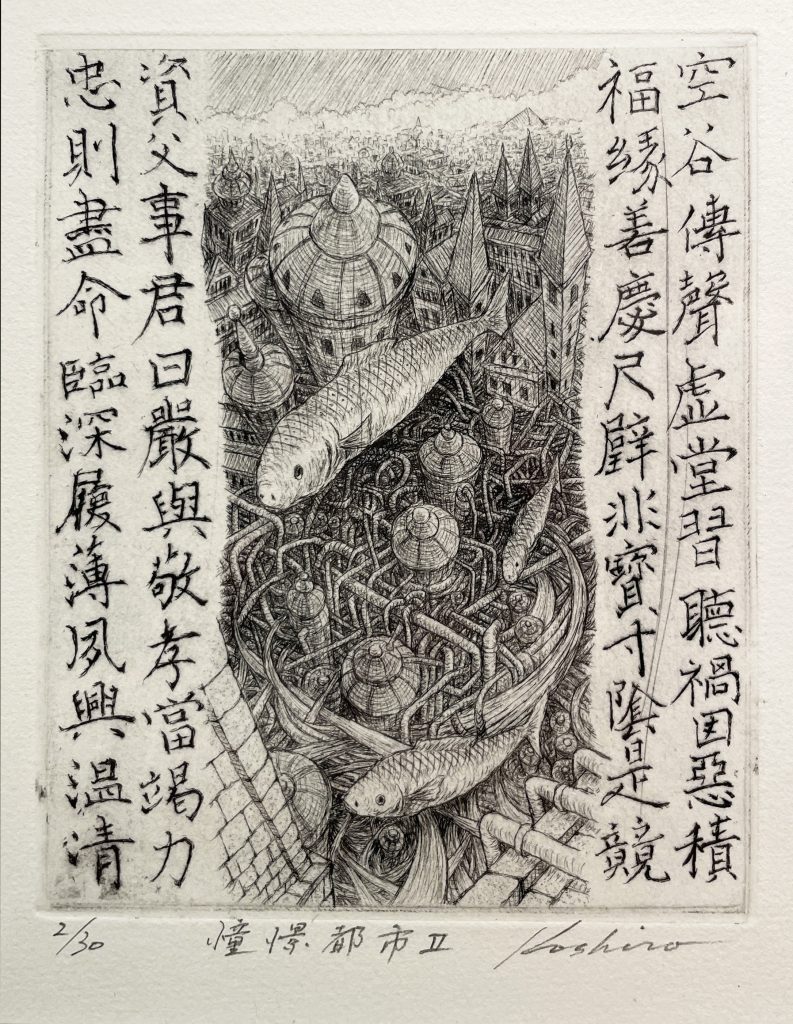 空谷傳聲虚堂習聽禍因惡積
福縁善慶尺璧非寶寸陰是競
資父事君曰嚴與敬孝當竭力
忠則盡命臨深履薄夙興温清
2/30
憧憬都市II
Koshiro